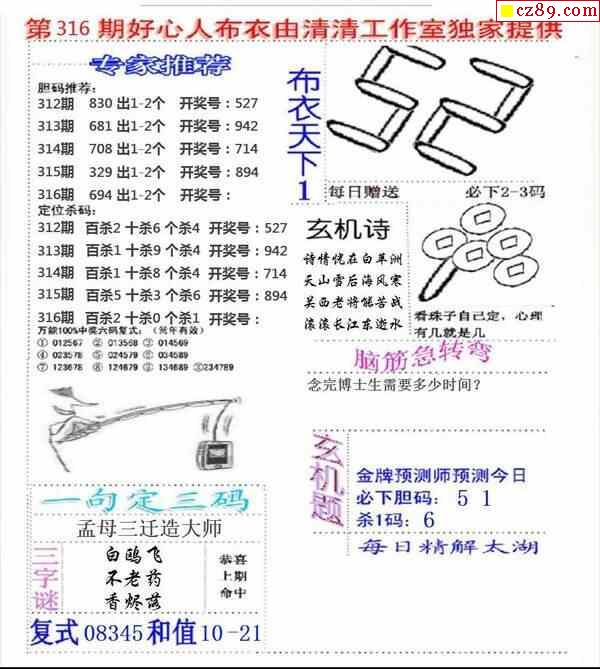 cz89.com
第316期好心人布衣由清清工作室独家提供
专家推荐
胆码推荐:
312期 830出1-2个 开奖号:527
313期 681出1-2个 开奖号:942
314期 708出1-2个 开奖号:714
315期 329出1-2个 开奖号:894
316期 694出1-2个 开奖号:
定位杀码:
312期 百杀2 十杀6 个杀4 开奖号:527
313期 百杀1 十杀9 个杀4 开奖号:942
314期 百杀1 十杀8 个杀4 开奖号:714
315期 百杀5 十杀3 个杀6 开奖号:894
316期 百杀2 十杀0 个杀1 开奖号:
万能100%中奖六码复式:(常年有效)
① 012567 ② 013568 ③ 014569
④ 023578 ⑤ 024579 ⑥ 034589
⑦ 123678 ⑧ 124679 ⑨ 134689 ⑩234789
一句定三码
孟母三迁造大师
三字谜
白鸥飞
不老药
香烬落
恭喜
上期
命中
复式08345和值10-21
布衣天下1
52
每日赠送 必下2-3码
玄机诗
诗情恍在白苹洲
天山雪后海风寒
关西老将能苦战
滚滚长江东逝水
看珠子自己定,心理
有几就是几
脑筋急转弯
念完博士生需要多少时间?
玄机题
金牌预测师预测今日
必下胆码: 5 1
杀1码: 6
每日精解太湖